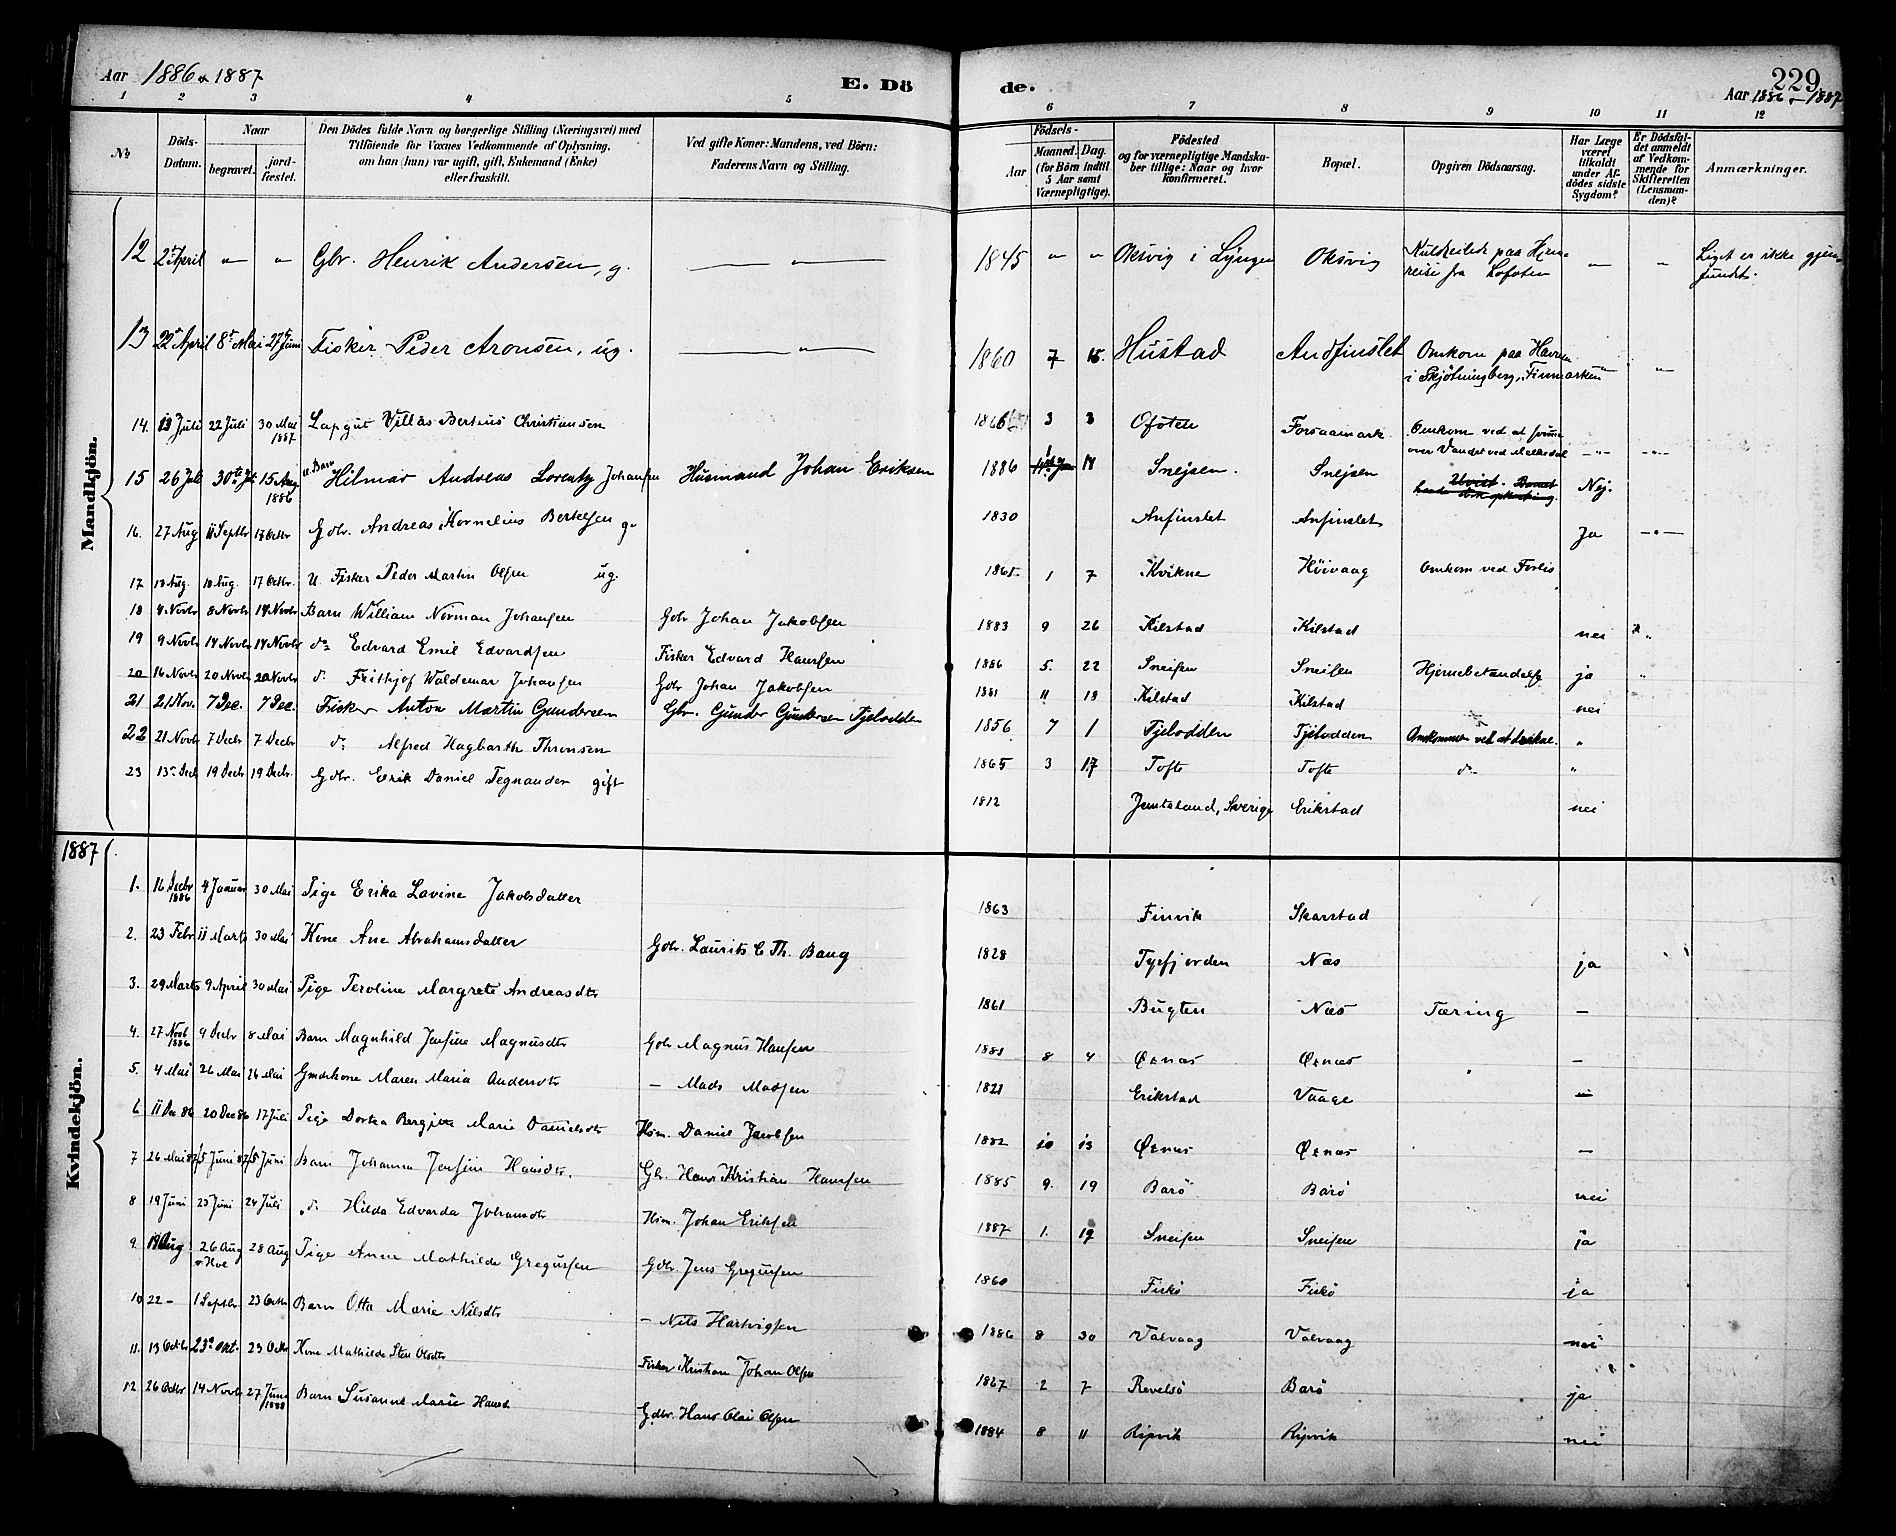 Aar 1886 & 1887
E. Döde.
229
Aar 1886 - 1887
1 2 3 4 5 6 7 8 9 10 11 12
No
Döds-Datum.
Naar
begravet.
jord-fæstet.
Den Dödes fulde Navn og borgerlige Stilling (Næringsvei) med
Tilföiende for Voxnes Vedkommende af Oplysning,
om han (hun) var ugift, gift, Enkemand (Enke)
eller fraskilt.
Ved gifte Koner: Mandens, ved Börn:
Faderens Navn og Stilling.
Födsels-
Aar
Maaned. Dag.
(for Börn indtil
5 Aar samt
Værnepligtige).
Födested
og for værnepligtige Mandska-
ber tillige: Naar og hvor
konfirmeret.
Bopæl.
Opgiven Dödsaarsag.
Har Læge
været
tilkaldt
under Af-
dödes sidste
Sygdom?
Er Dödsfal-
det anmeldt
af Vedkom-
mende for
Skifteretten
(Lensman-
den)?
Anmærkninger.
Mandkjön.
12 2 April " " Gbr. Henrik Andersen, g. — " — 1845 " " Oksvig i Lyngen Oksvig Kuldseilede paa Hjem-
reise fra Lofoten — " Liget er ikke gjen-
fundet.
13 22 April 8 Mai 27 Juni Fisker Peder Aronsen, ug. — " — 1860 7 15. Hustad Andfinslet Omkom paa Havnen
i Skjötningberg, Finmarken "
14. 13 Juli 22 Juli 30 Mai 1887 Lapgut Villas Bertius Christiansen 1866 3 3 Ofoten Forsaamark Omkom ved at svømme
over Vandet ved
15 26 Juli 30te Juli 15 Aug 1886 u. Barn Hilmar Andreas Lorentz Johansen Husmand Johan Eriksen 1886 18 Snejsen. Snejsen Nej.
16. 27 Aug 11 Septbr 18 Octbr Gdbr. Andreas Kornelius Bertelsen g. 1830 Anfinslet Anfinslet Ja — " —
17 18 Aug. 18 Aug. 17 Octbr. U. Fisker Peder Martin Olsen ug. 1865 1 7 Kvikne Höivaag Omkom ved Forlis
18 4 Novbr 8 Novbr 14 Novbr Barn William Norman Johansen Gdbr Johan Jakobsen 1883 9 26 Kilstad Kilstad nei
19 9 Novbr 14 Novbr 14 Novbr do Edvard Emil Edvardsen Fisker Edvard Hansen 1886 5. 22 Sneisen Sneisen Hjernebetændelse ja "
20 16 Novbr 20 Novbr 20 Novbr do Frithjof Waldemar Johansen Gdbr Johan Jakobsen 1881 11 18 Kilstad Kilstad nei
21 21 Nov. 7 Dec. 7 Dec. Fisker Anton Martin Gundersen Gbr. Gunder Gundersen Tjelodden 1856 7 1 Tjelodden Tjelodden Omkommen ved at drukne. "
22 21 Novbr 7 Decbr 7 Decbr do Alfred Hagbarth Thronsen 1865 3 17 Tofte Tofte do "
23 13 Decb 19 Decbr 19 Decbr. Gdbr. Eerik Daniel Tegnander gift 1812 Jemteland, Sverige Erikstad nei
1887
Kvindekjön.
1. 16 Decbr 1886 4 Januar 30 Mai Pige Erika Lavine Jakobsdatter 1863 Finvik Skarstad
2. 23 Febr 11 Marts 30 Mai Kone Ane Abrahamsdatter Gdbr. Laurits C Th. Bang 1828 Tysfjorden Næs ja
3. 29 Marts 9 April 30 Mai Pige Peroline Margrete Andreasdtr 1861 Bugten Næs Tæring —
4. 27 Novb 1886 9 Decbr 8 Mai Barn Magnhild Jensine Magnusdtr Gdbr Magnus Hansen 1881 8 4 Ørnæs Ørnæs —
5. 4 Mai 26 Mai 26 Mai Gmdskone Maren Maria Andersdtr — Mads Madsen 1821 Erikstad Vaage —
6 11 Dec 86 20 Dec 86 17 Juli Pige Dortea Bergitte Marie Danielsdtr Hsm. Daniel Jacobsen 1882 10 13 Ørnæs Ørnæs —
7 26 Mai 87 5 Juni 87 5 Juni Barn Johanna Jensine Hansdtr. Gbr. Hans Kristian Hansen 1885 9. 19 Barö Barö nei
8 19 Juni 23 Juni 24 Juli do Hilda Edvarda Johansdtr Hsm. Johan Eriksen 1887 1. 19 Sneisen Sneisen ja
9. 19 Aug 26 Aug 28 Aug Pige Anna Mathilde Gregussen Gdbr Jens Gregusen 1860 Fiskö Fiskö ja
10 22 — 1 Septbr 23 Octbr Barn Otta Marie Nilsdtr — Nils Hartvigsen 1886 8 30 Valvaag Valvaag nei
11. 13 Octbr 23de Okt. 23 Octbr Kone Mathilde Sten Olsdtr Fisker Kristian Johan Olsen 1867 2 7 Revelsö Barö ja
12 26 Octbr 14 Novbr 27 Juni 1888 Barn Susanne Marie Hansd Gdbr. Hans Olai Olsen 1884 8 11 Ripvik Ripvik nei